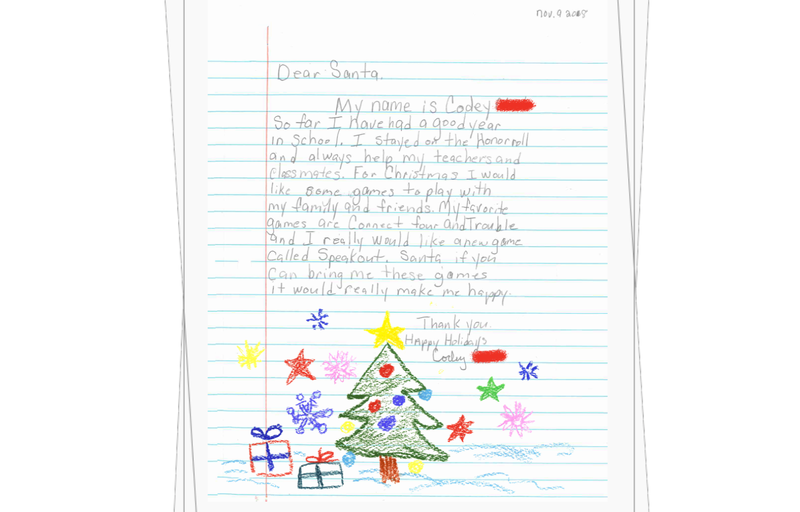 nov. 9 2015
Dear Santa.
My name is Codey
So far I have had a good year
in School. I stayed on the Honor roll
and always help my teachers and
classmates. For Christmas I would
like some games to play with
my family and friends. My favorite
games are Connect four and Trouble
and I really would like a new game
called Speakout. Santa if you
can bring me these games
it would really make me happy.
Thank you.
Happy Holidays
Codey